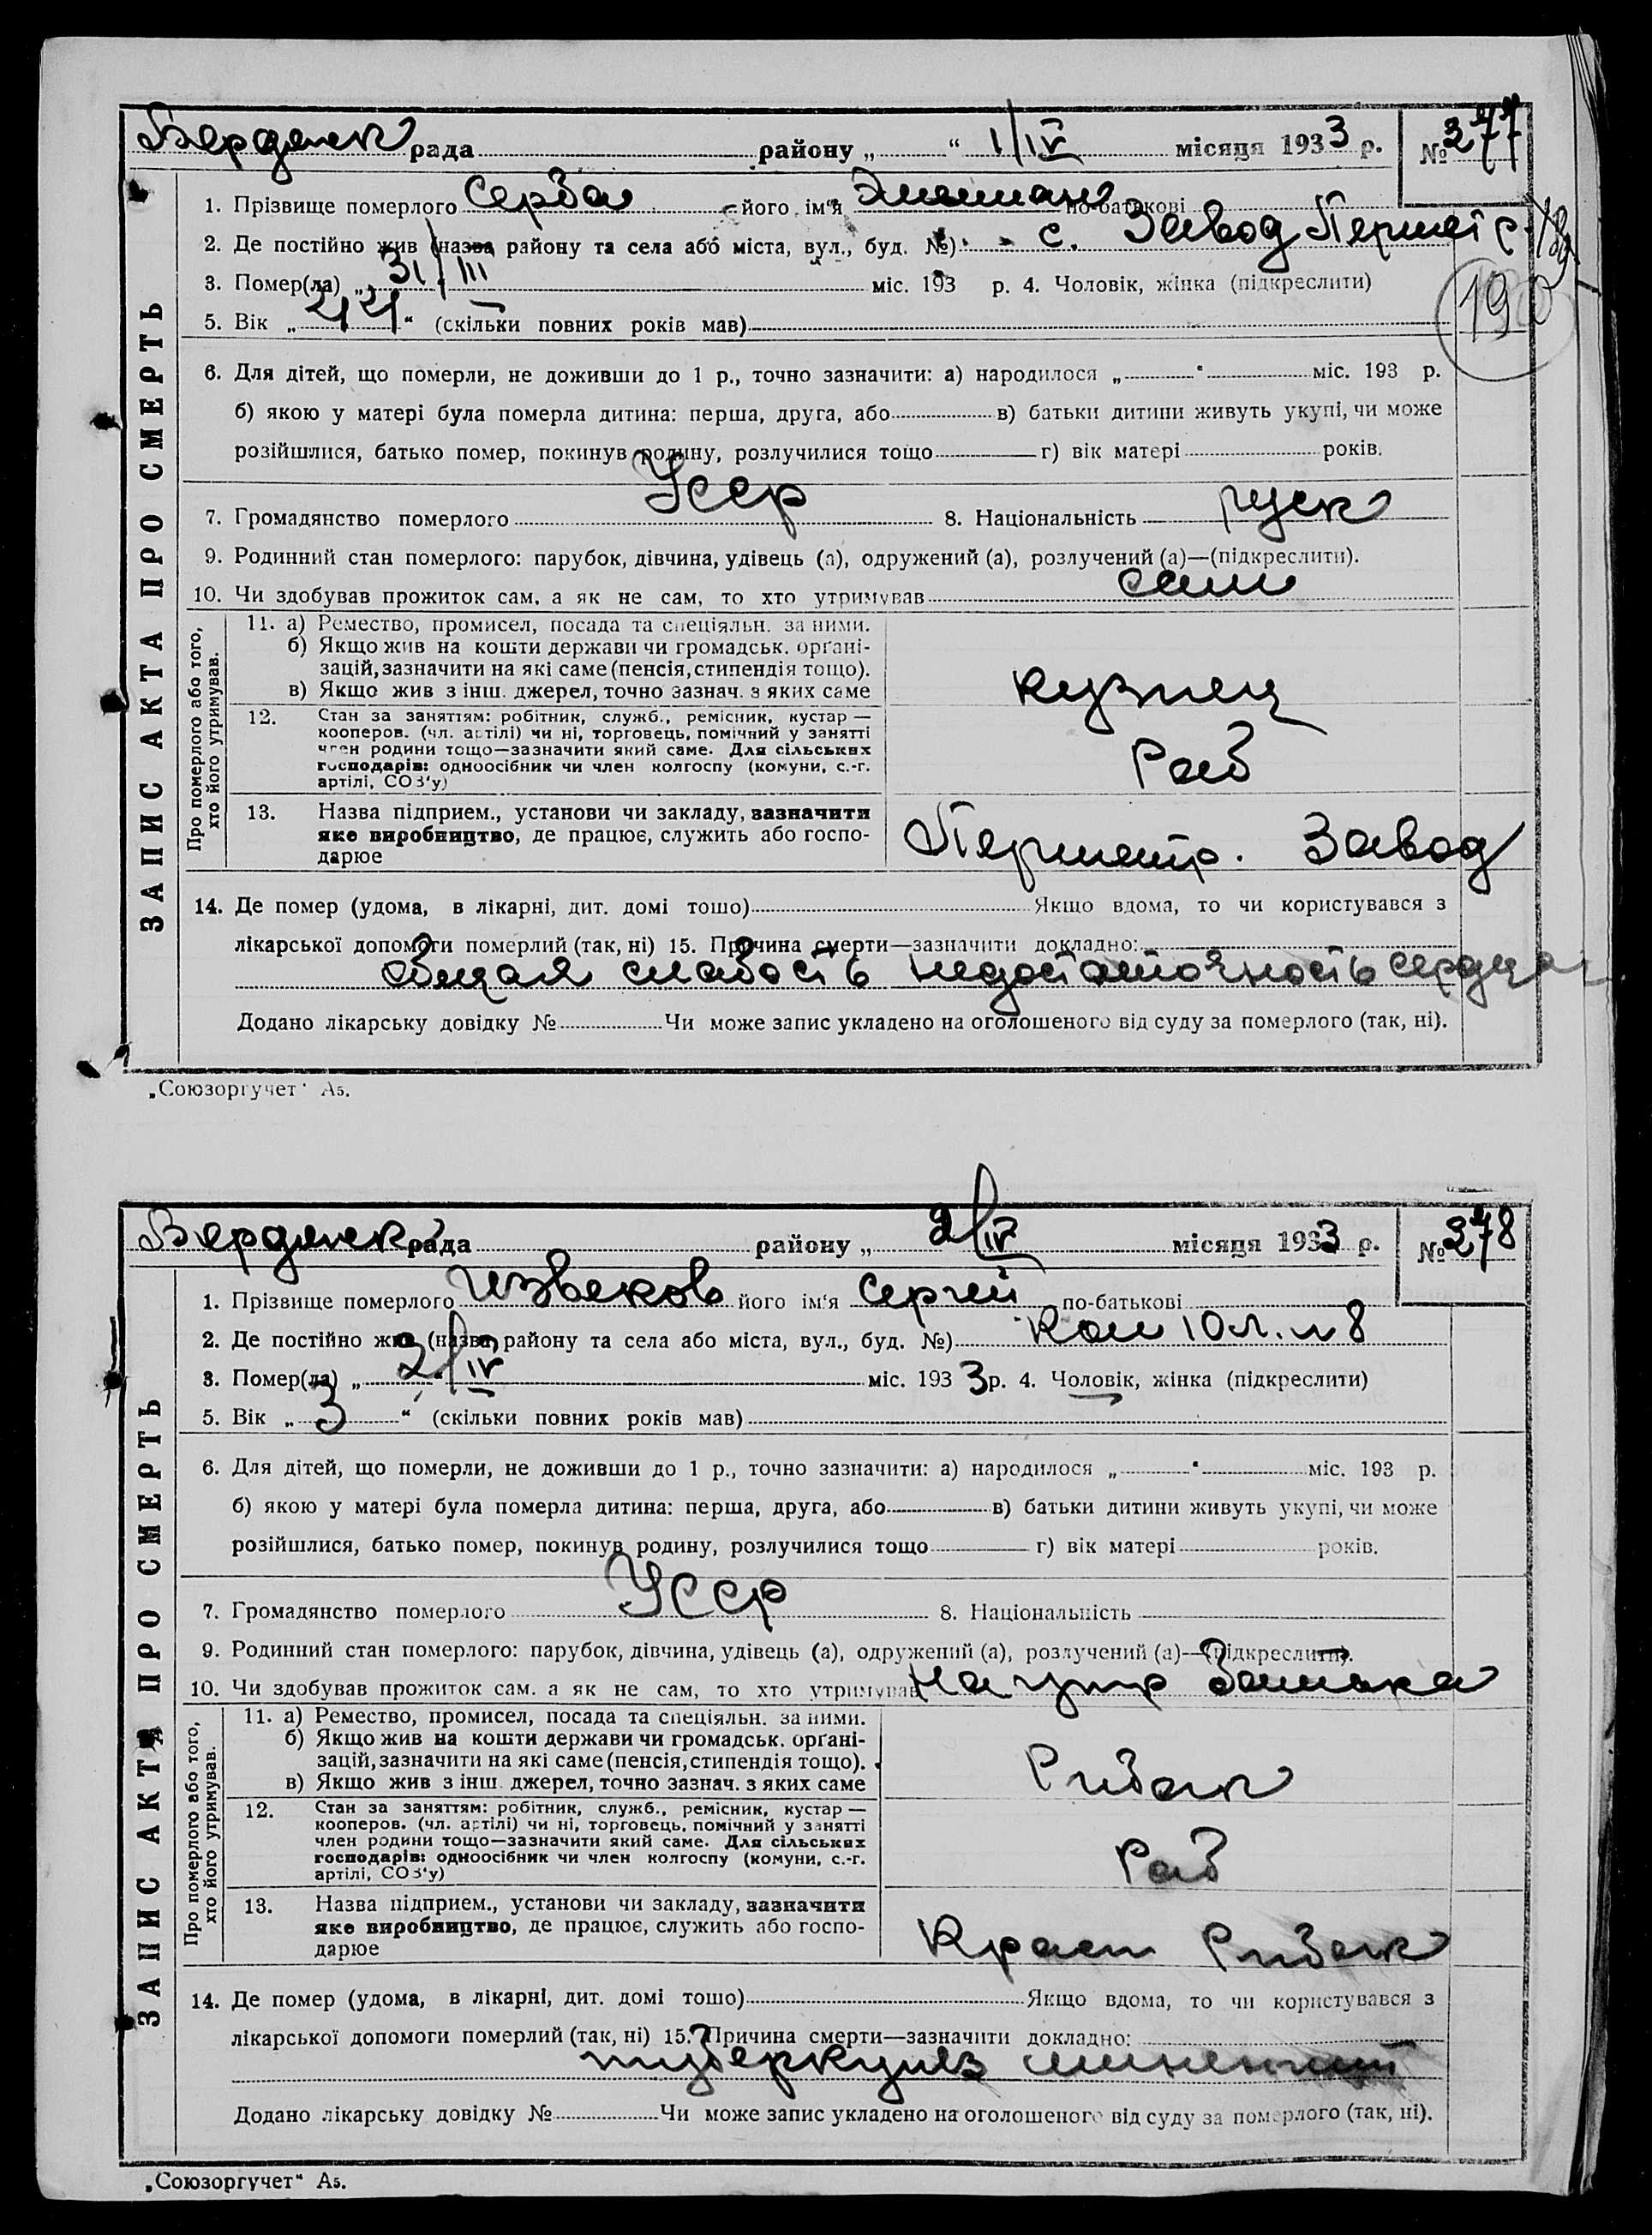 Бердянск рада района „ “ 1/IV місяця 1933 р. № 277
ЗАПИС АКТА ПРО СМЕРТЬ
1. Прізвище померлого Серба його ім'я по-батькові
2. Де постійно жив (назва району та села або міста, вул., буд. №) с. Завод Перметр
3. Помер(ла) „ 31/III міс. 193 р. 4. Чоловік, жінка (підкреслити)
190
5. Вік „ 44 “ (скільки повних років мав)
6. Для дітей, що померли, не доживши до 1 р., точно зазначити: а) народилося „ “ міс. 193 р.
б) якою у матері була померла дитина: перша, друга, або в) батьки дитини живуть укупі, чи може
розійшлися, батько помер, покинув родину, розлучилися тощо г) вік матері років.
7. Громадянство померлого Усср 8. Національність руск
9. Родинний стан померлого: парубок, дівчина, удівець (а), одружений (а), розлучений (а)—(підкреслити).
10. Чи здобував прожиток сам, а як не сам, то хто утримував сам
Про померлого або того, хто його утримував.
11. а) Ремество, промисел, посада та спеціяльн. за ними.
б) Якщо жив на кошти держави чи громадськ. орґані-
зацій, зазначити на які саме (пенсія, стипендія тощо).
в) Якщо жив з інш. джерел, точно зазнач. з яких саме
кузнец
12. Стан за заняттям: робітник, служб., ремісник, кустар —
кооперов. (чл. артілі) чи ні, торговець, помічний у занятті
член родини тощо—зазначити який саме. Для сільських
господарів: одноосібник чи член колгоспу (комуни, с.-г.
артілі, СОЗ'у)
Раб
13. Назва підприєм., установи чи закладу, зазначити
яке виробництво, де працює, служить або госпо-
дарює
Перметр. Завод
14. Де помер (удома, в лікарні, дит. домі тошо) Якщо вдома, то чи користувався з
лікарської допомоги померлий (так, ні) 15. Причина смерти—зазначити докладно:
общая слабость недостаточность сердца
Додано лікарську довідку № Чи може запис укладено на оголошеного від суду за померлого (так, ні).
„Союзоргучет“ А5.
Бердянск рада району „ 2/IV місяця 1933 р. № 278
ЗАПИС АКТА ПРО СМЕРТЬ
1. Прізвище померлого Извеков його ім'я Сергей по-батькові
2. Де постійно жив (назва району та села або міста, вул., буд. №) Кол 10 л. н 8
3. Помер(ла) „ 2/IV міс. 193 3 р. 4. Чоловік, жінка (підкреслити)
5. Вік „ 3 “ (скільки повних років мав)
6. Для дітей, що померли, не доживши до 1 р., точно зазначити: а) народилося „ “ міс. 193 р.
б) якою у матері була померла дитина: перша, друга, або в) батьки дитини живуть укупі, чи може
розійшлися, батько помер, покинув родину, розлучилися тощо г) вік матері років.
7. Громадянство померлого Усср 8. Національність
9. Родинний стан померлого: парубок, дівчина, удівець (а), одружений (а), розлучений (а)—(підкреслити).
10. Чи здобував прожиток сам. а як не сам, то хто утримував на утр батька
Про померлого або того, хто його утримував.
11. а) Ремество, промисел, посада та спеціяльн. за ними.
б) Якщо жив на кошти держави чи громадськ. орґані-
зацій, зазначити на які саме (пенсія, стипендія тощо).
в) Якщо жив з інш. джерел, точно зазнач. з яких саме
Рибак
12. Стан за заняттям: робітник, служб., ремісник, кустар —
кооперов. (чл. артілі) чи ні, торговець, помічний у занятті
член родини тощо—зазначити який саме. Для сільських
господарів: одноосібник чи член колгоспу (комуни, с.-г.
артілі, СОЗ'у)
Раб
13. Назва підприєм., установи чи закладу, зазначити
яке виробництво, де працює, служить або госпо-
дарює
Красн Рибак
14. Де помер (удома, в лікарні, дит. домі тошо) Якщо вдома, то чи користувався з
лікарської допомоги померлий (так, ні) 15. Причина смерти—зазначити докладно:
туберкулез
Додано лікарську довідку № Чи може запис укладено на оголошеного від суду за померлого (так, ні).
„Союзоргучет“ А5.